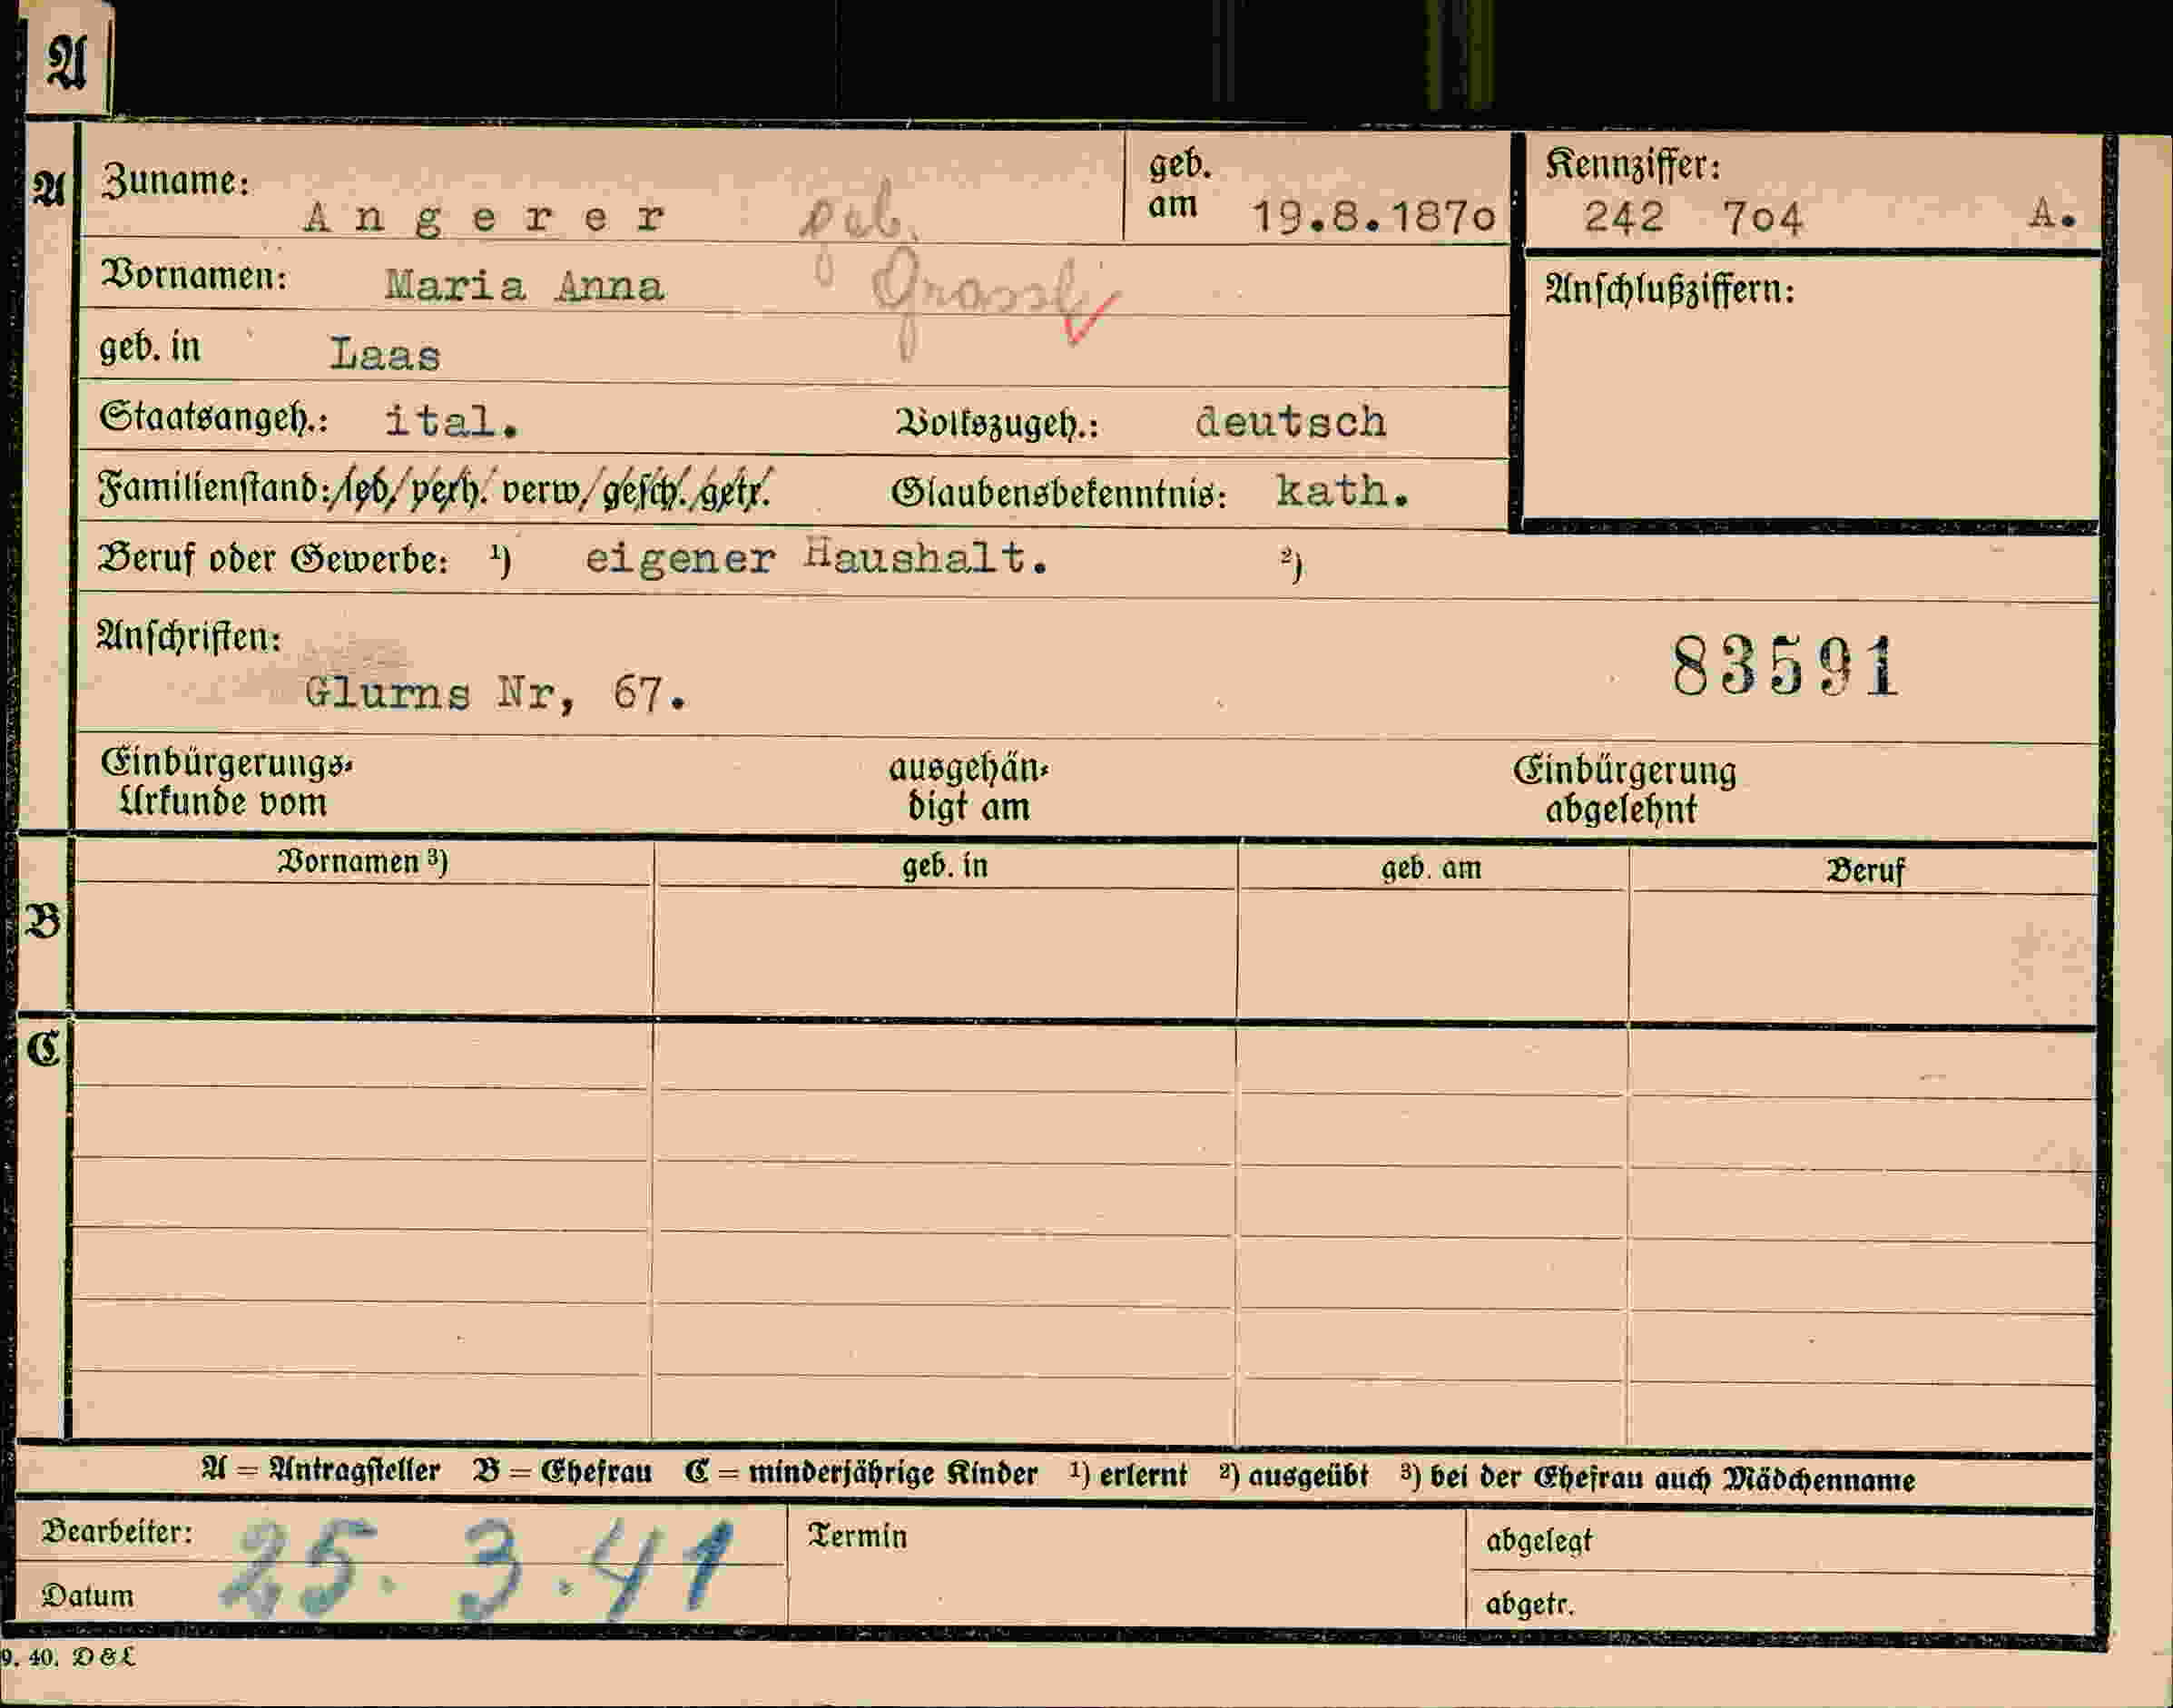 A
A Zuname: Angerer geb. geb. am 19.8.1870 Kennziffer: 242 704 A.
Vornamen: Maria Anna Grassl Anschlußziffern:
geb. in Laas
Staatsangeh.: ital. Volkszugeh.: deutsch
Familienstand: led./verh. verw./gesch./getr. Glaubensbekenntnis: kath.
Beruf oder Gewerbe: ¹) eigener Haushalt. ²)
Anschriften: 83591
Glurns Nr, 67.
Einbürgerungs- ausgehän- Einbürgerung
Urkunde vom digt am abgelehnt
Vornamen ³) geb. in geb. am Beruf
B
C
A = Antragsteller B = Ehefrau C = minderjährige Kinder ¹) erlernt ²) ausgeübt ³) bei der Ehefrau auch Mädchenname
Bearbeiter: 25.3.41 Termin abgelegt
Datum abgetr.
9. 40. D&L